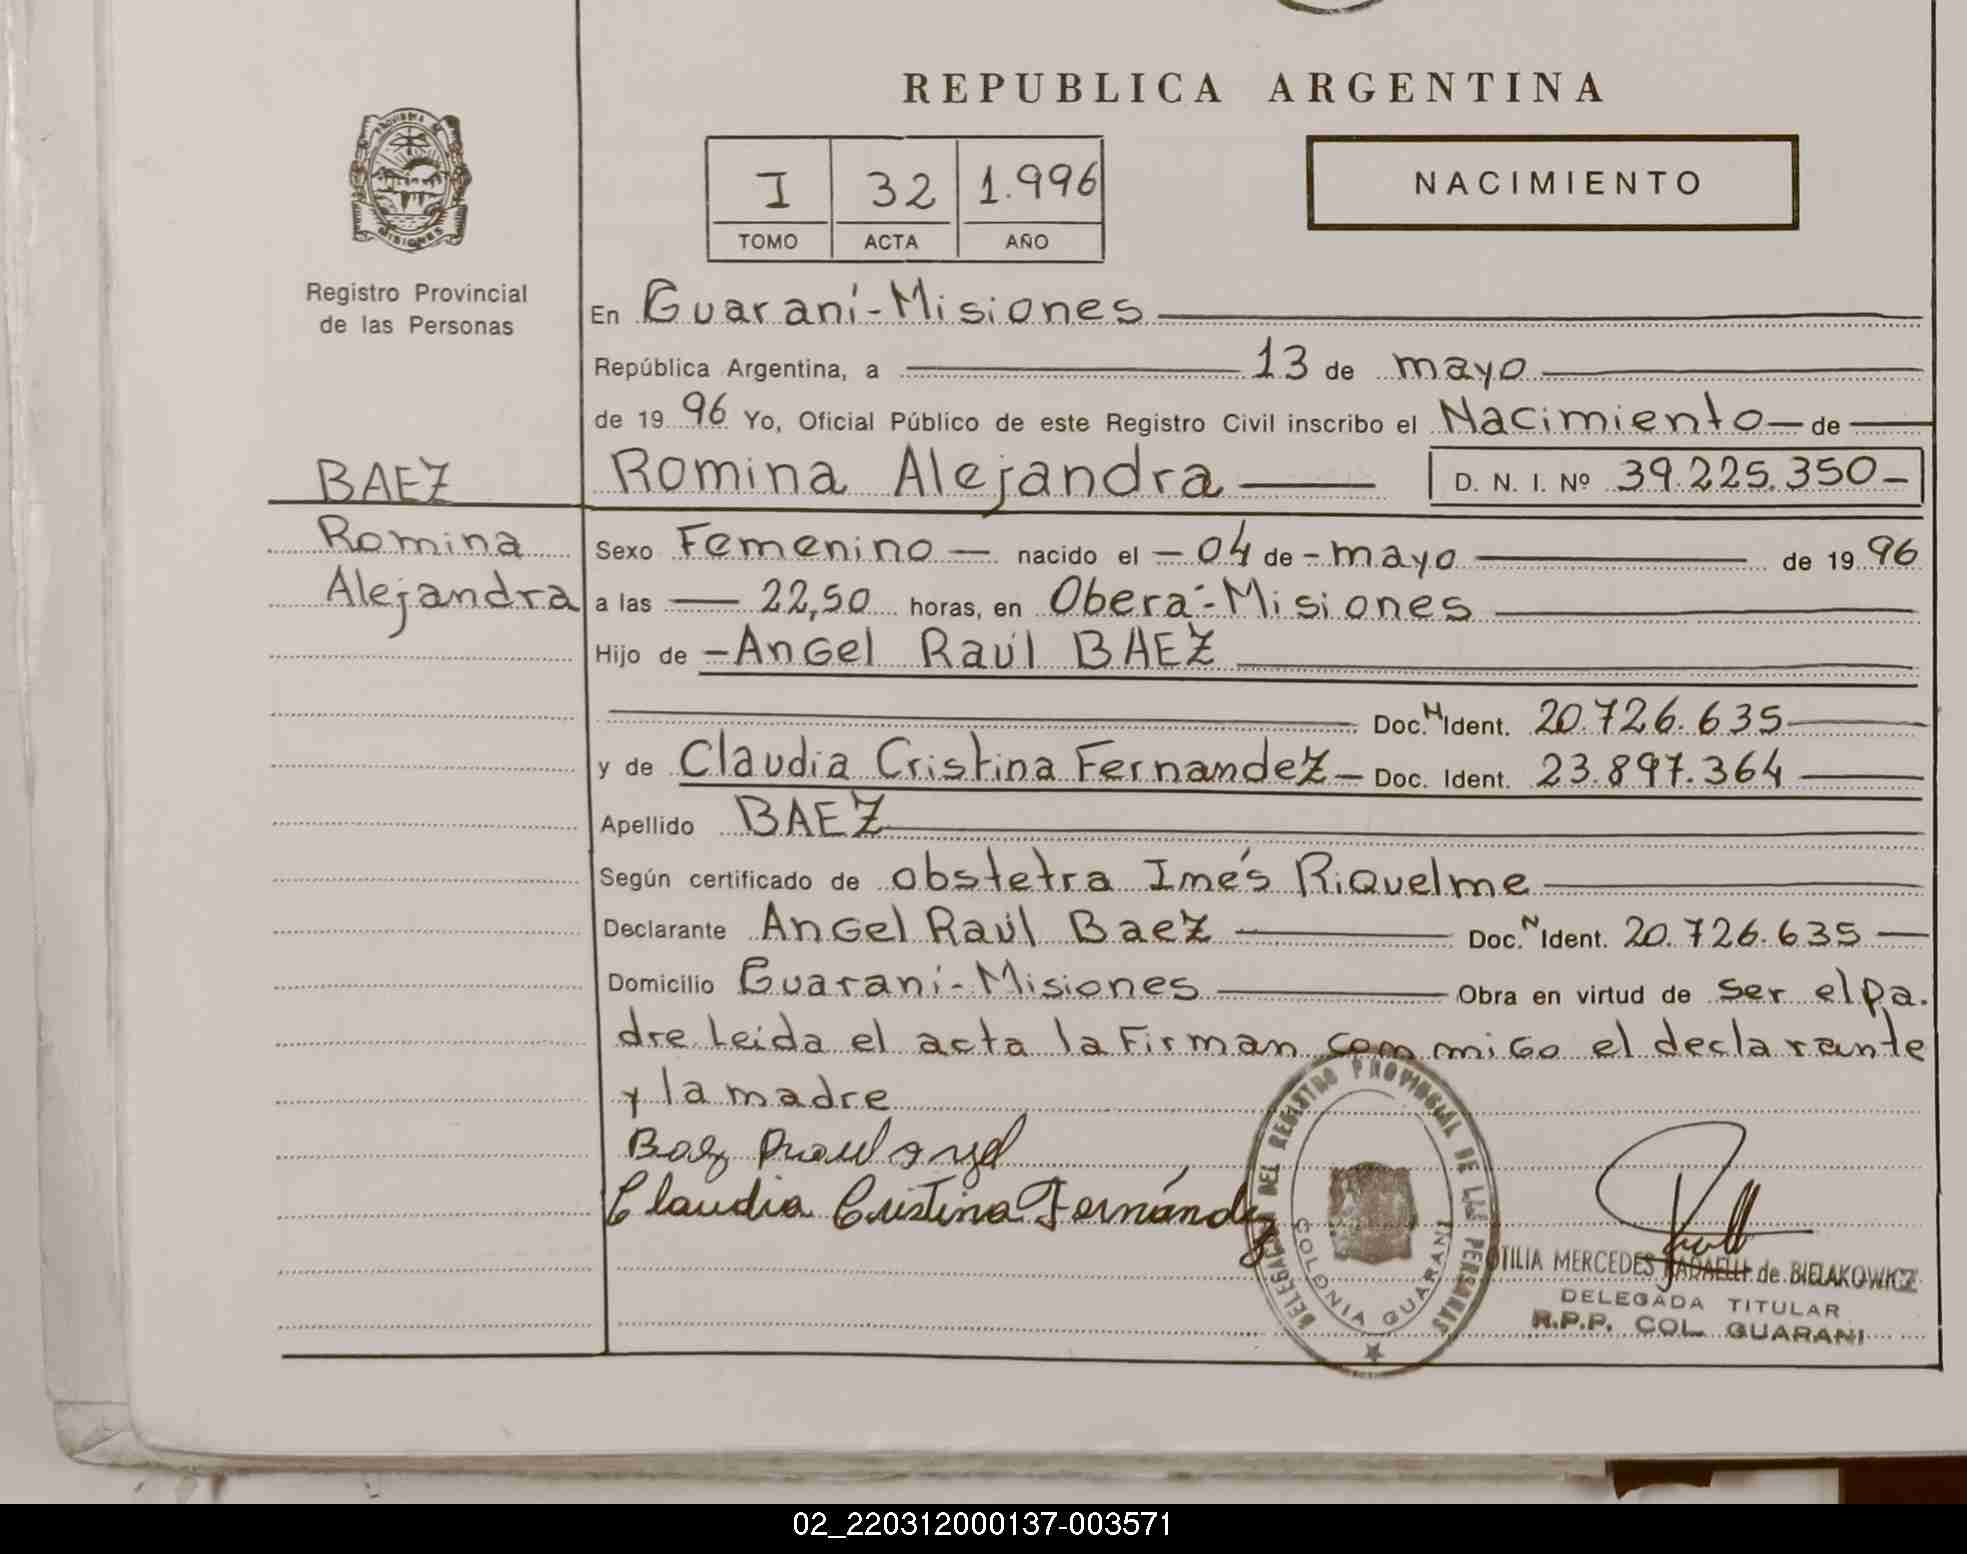 REPUBLICA ARGENTINA
PROVINCIA DE
MISIONES
Registro Provincial
de las Personas
I 32 1.996
TOMO ACTA AÑO
NACIMIENTO
En Guaraní-Misiones
República Argentina, a 13 de mayo
de 19 96 Yo, Oficial Público de este Registro Civil inscribo el Nacimiento de
BAEZ
Romina
Alejandra
Romina Alejandra D. N. I. Nº 39.225.350-
Sexo Femenino nacido el -04 de - mayo de 19 96
a las 22,50 horas, en Oberá-Misiones
Hijo de -Angel Raúl BAEZ
Doc. N Ident. 20.726.635
y de Claudia Cristina Fernandez - Doc. Ident. 23.897.364
Apellido BAEZ
Según certificado de obstetra Inés Riquelme
Declarante Angel Raúl Baez Doc. N Ident. 20.726.635
Domicilio Guaraní-Misiones Obra en virtud de ser el pa.
dre leída el acta la firman conmigo el declarante
y la madre
Baez Raul Angel
Claudia Cristina Fernández
DELEGACION DEL REGISTRO PROVINCIAL DE LAS PERSONAS
COLONIA GUARANI
OTILIA MERCEDES RADAELLI de BIELAKOWICZ
DELEGADA TITULAR
R.P.P. COL GUARANI
02_220312000137-003571